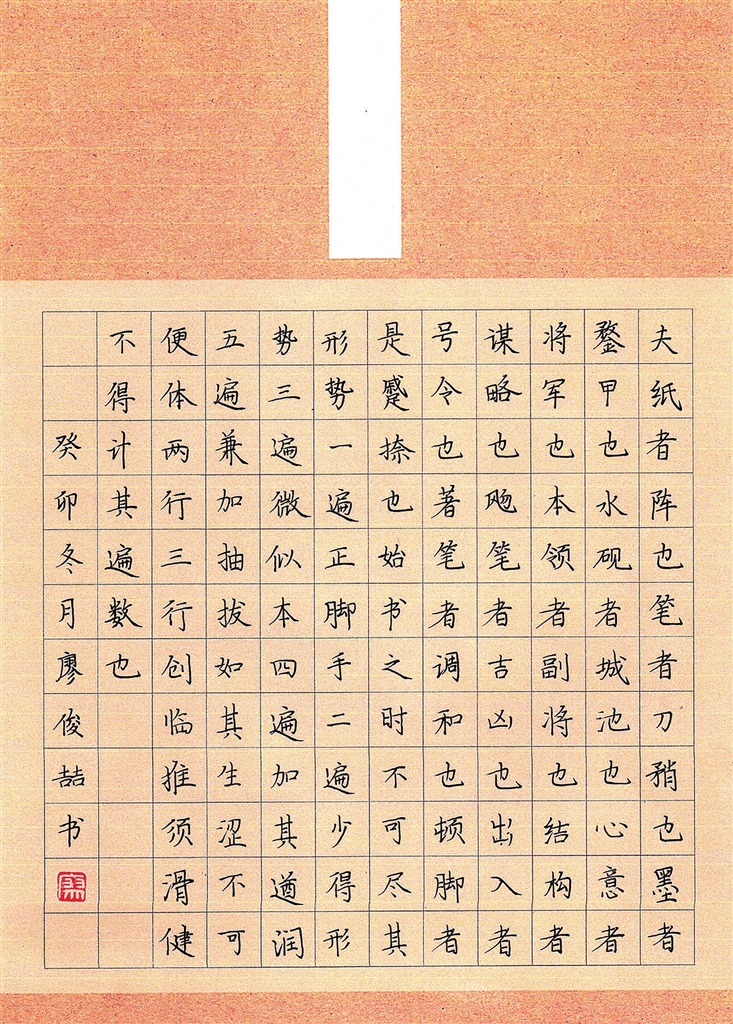 夫纸者阵也笔者刀矟也墨者
鍪甲也水砚者城池也心意者
将军也本领者副将也结构者
谋略也飏笔者吉凶也出入者
号令也著笔者调和也顿脚者
是蹙捺也始书之时不可尽其
形势一遍正脚手二遍少得形
势三遍微似本四遍加其遒润
五遍兼加抽拔如其生涩不可
便体两行三行创临推须滑健
不得计其遍数也
癸卯冬月廖俊喆书